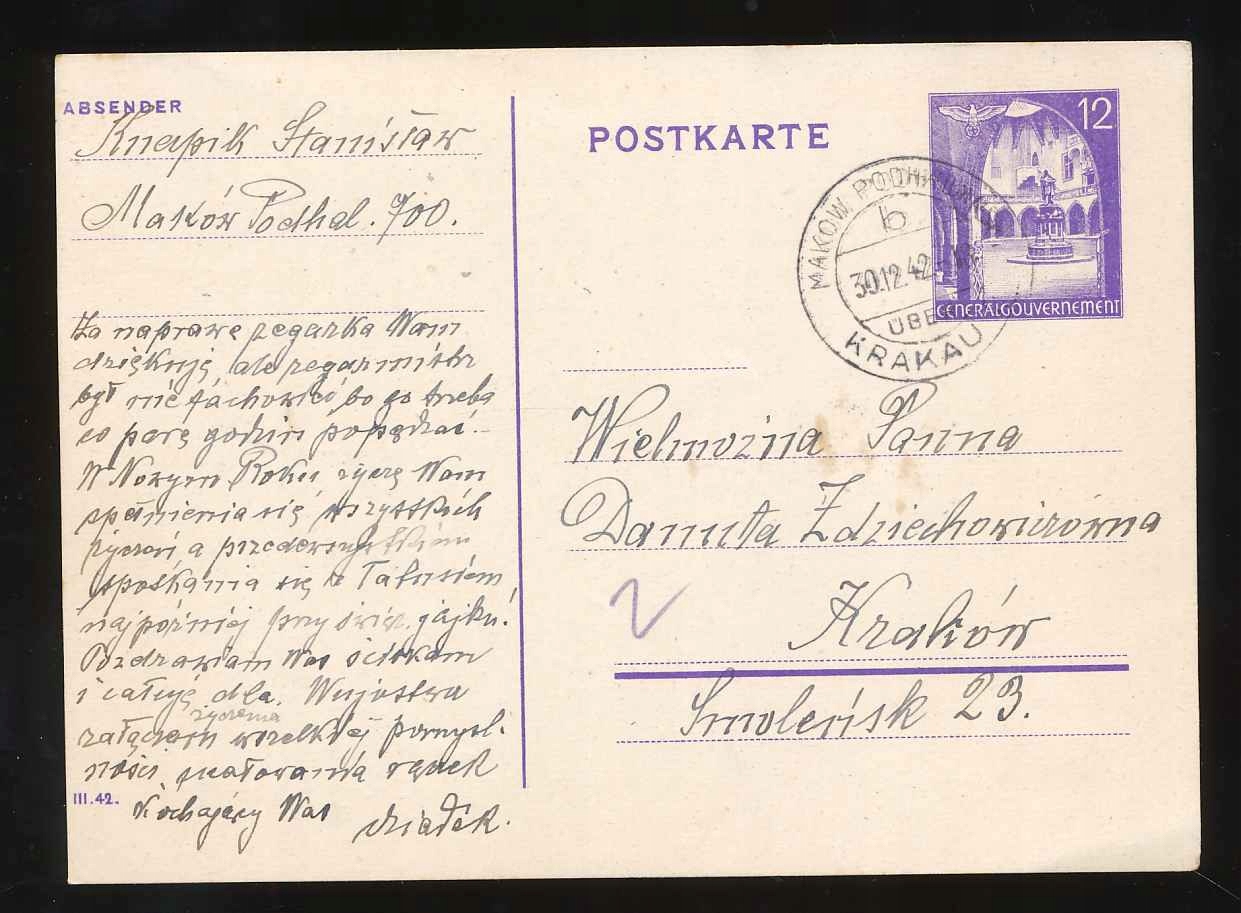 ABSENDER
Knapik Stanisław
Maków Podhal. 700.
Za naprawę zegarka Wam
dziękuję ale zegarmistrz
był nie fachowiec bo go trzeba
co parę godzin popędzać.
W Nowym Roku życzę Wam
spełnienia się wszystkich
życzeń a przedewszystkiem
spotkania się z Tatusiem
najpóźniej przy święc. jajku.
Pozdrawiam Was ściskam
i całuję dla Wujostwa
życzenia
załączam wszelkiej pomyśl-
ności, ucałowania rączek
Kochający Was
dziadek.
III.42.
POSTKARTE
12
GENERALGOUVERNEMENT
MAKOW PODHALANSKI
b
30.12.42
ÜBER
KRAKAU
Wielmożna Panna
Danuta Zdziechowiczówna
Kraków
Smoleńsk 23.